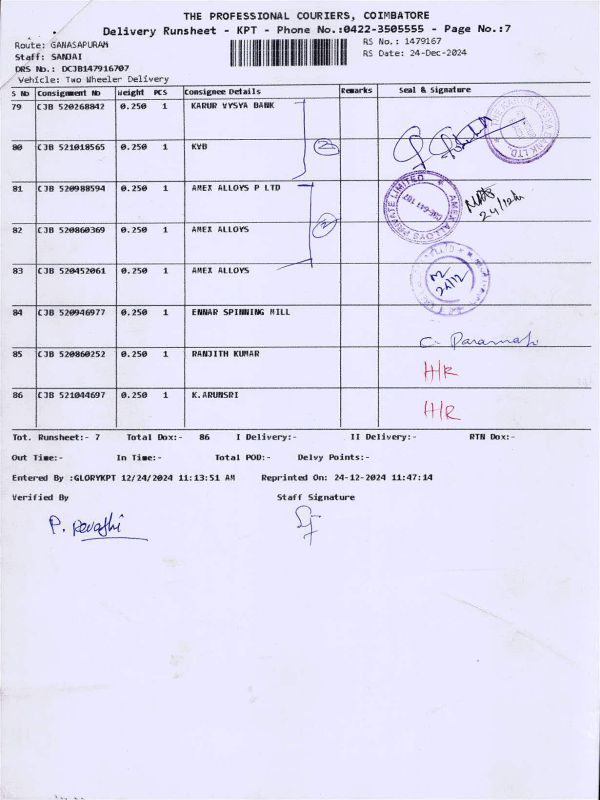 THE PROFESSIONAL COURIERS, COIMBATORE
Delivery Runsheet - KPT - Phone No.:0422-3505555 - Page No.:7
Route: GANASAPURAM
RS No.: 1479167
Staff: SANJAI
RS Date: 24-Dec-2024
DRS No.: DCJB147916707
Vehicle: Two Wheeler Delivery
S No Consignment No Weight PCS Consignee Details Remarks Seal & Signature
79 CJB 520268842 0.250 1 KARUR VYSYA BANK
80 CJB 521018565 0.250 1 KVB
2
THE KARUR VYSYA BANK LTD.
81 CJB 520988594 0.250 1 AMEX ALLOYS P LTD
82 CJB 520860369 0.250 1 AMEX ALLOYS
3
AMEX ALLOYS PRIVATE LIMITED
CBE-641 107
24/12/24
83 CJB 520452061 0.250 1 AMEX ALLOYS
24/12
84 CJB 520946977 0.250 1 ENNAR SPINNING MILL
85 CJB 520860252 0.250 1 RANJITH KUMAR
H/R
86 CJB 521044697 0.250 1 K.ARUNSRI
H/R
Tot. Runsheet:- 7 Total Dox:- 86 I Delivery:- II Delivery:- RTN Dox:-
Out Time:- In Time:- Total POD:- Delvy Points:-
Entered By :GLORYKPT 12/24/2024 11:13:51 AM Reprinted On: 24-12-2024 11:47:14
Verified By Staff Signature
P. Revathi